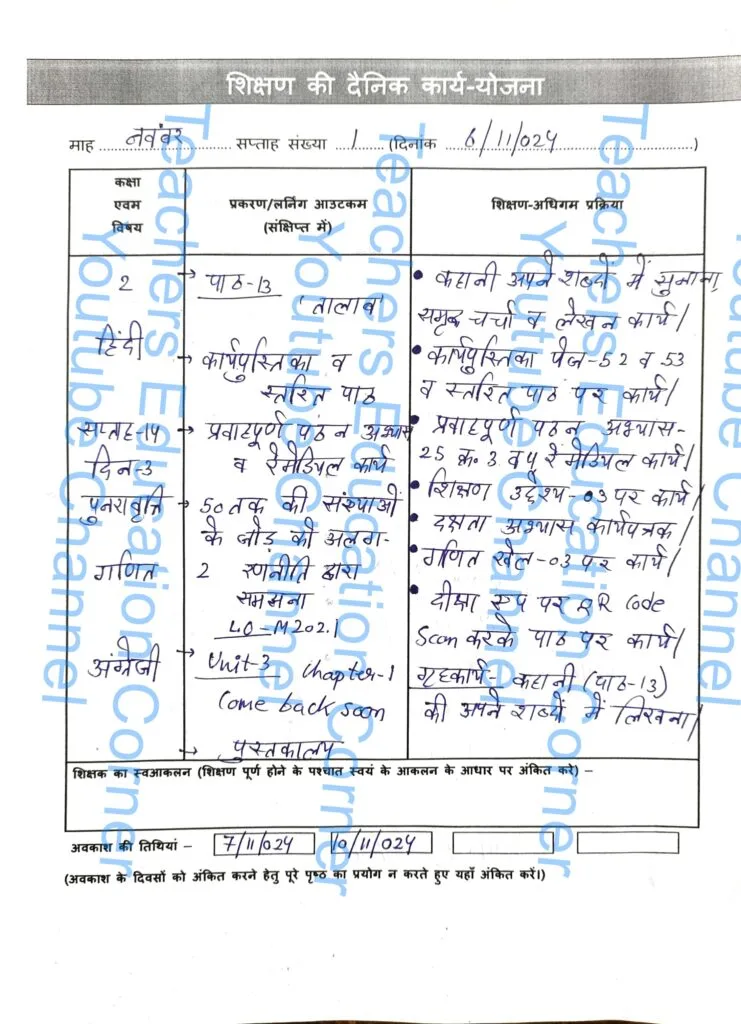 शिक्षण की दैनिक कार्य-योजना
माह नवंबर सप्ताह संख्या 1 (दिनांक 6/11/024)
कक्षा एवम विषय
प्रकरण/लर्निंग आउटकम (संक्षिप्त में)
शिक्षण-अधिगम प्रक्रिया
2
हिंदी
सप्ताह-14
दिन-3
पुनरावृत्ति
गणित
अंग्रेजी
→ पाठ-13
'तालाब'
→ कार्यपुस्तिका व
स्तरित पाठ
→ प्रवाहपूर्ण पठन अभ्यास
व रेमेडियल कार्य
→ 50 तक की संख्याओं
के जोड़ को अलग-
2 रणनीति द्वारा
समझना
LO-M202.1
→ Unit-3 Chapter-1
Come back soon
→ पुस्तकालय
• कहानी अपने शब्दों में सुनाना,
समूह चर्चा व लेखन कार्य।
• कार्यपुस्तिका पेज-52 व 53
व स्तरित पाठ पर कार्य।
• प्रवाहपूर्ण पठन अभ्यास-
25 क्र. 3 रेमेडियल कार्य।
• शिक्षण उद्देश्य-03 पर कार्य।
• दक्षता अभ्यास कार्यपत्रक।
• गणित खेल-03 पर कार्य।
• दीक्षा एप पर QR Code
Scan करके पाठ पर कार्य।
गृहकार्य- कहानी (पाठ-13)
को अपने शब्दों में लिखना।
शिक्षक का स्वआकलन (शिक्षण पूर्ण होने के पश्चात स्वयं के आकलन के आधार पर अंकित करे) –
अवकाश की तिथियां – 7/11/024 10/11/024
(अवकाश के दिवसों को अंकित करने हेतु पूरे पृष्ठ का प्रयोग न करते हुए यहाँ अंकित करें।)
Teachers Education Corner
Youtube Channel
Teachers Education Corner
Youtube Channel
Teachers Education Corner
Youtube Channel